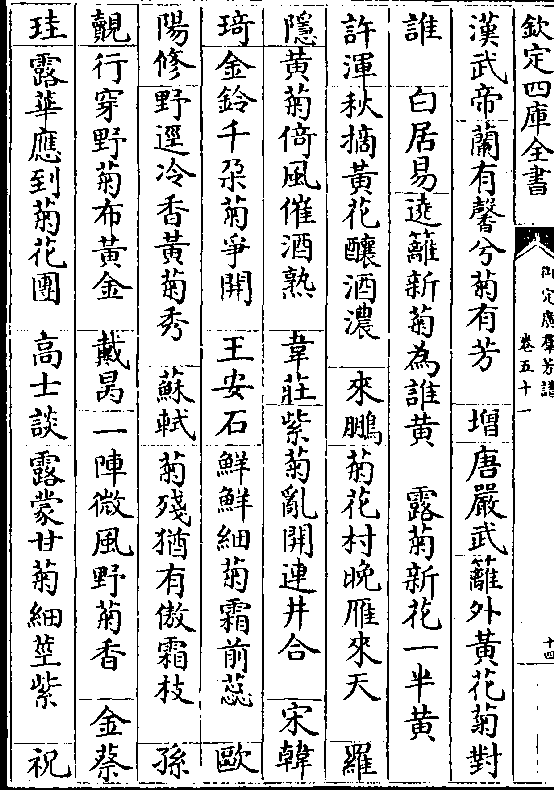 欽定四庫全書
御定廣羣芳譜
卷五十一
十四
漢武帝蘭有馨兮菊有芳 增唐嚴武籬外黃花菊對
誰 白居易遶籬新菊為誰黃 露菊新花一半黃
許渾秋摘黃花釀酒濃 來鵬菊花村晚雁來天 羅
隱黃菊倚風催酒熟 韋莊紫菊亂開連井合 宋韓
琦金鈴千朶菊爭開 王安石鮮鮮細菊霜前蕊 歐
陽修野逕冷香黃菊秀 蘇軾菊殘猶有傲霜枝 孫
覿行穿野菊布黃金 戴昺一陣微風野菊香 金蔡
珪露華應到菊花團 高士談露蒙甘菊細莖紫 祝